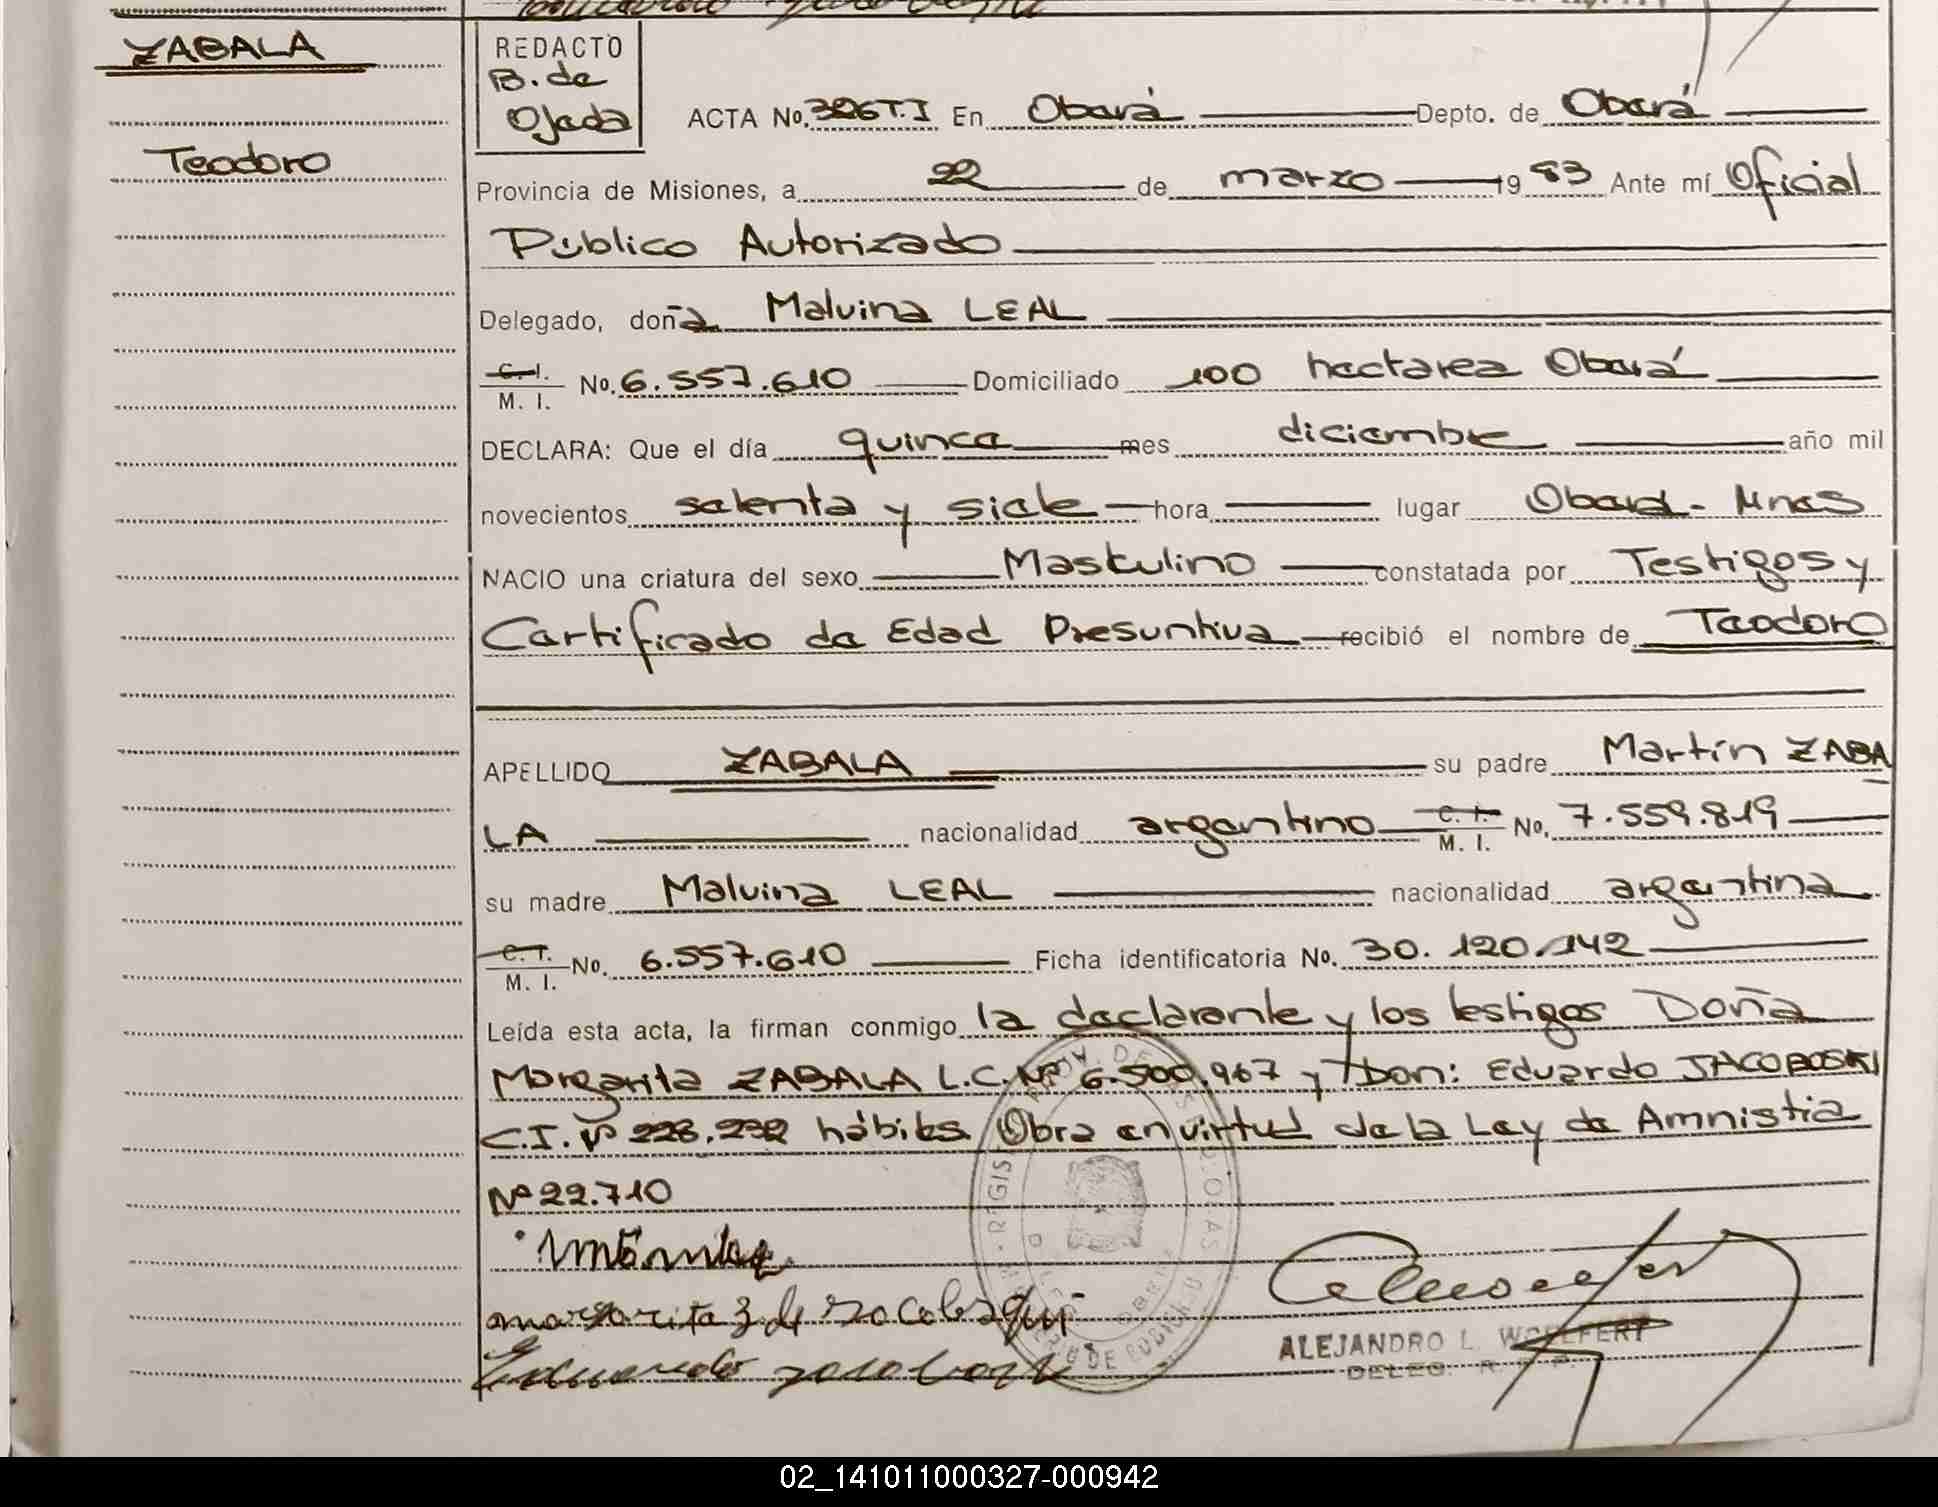 ZABALA
Teodoro
REDACTO
B. de
Ojeda
ACTA No. 326 T.I En Oberá Depto. de Oberá
Provincia de Misiones, a 22 de marzo 19 83 Ante mí Oficial
Público Autorizado
Delegado, doña Malvina LEAL
C. I. / M. I. No. 6.557.610 Domiciliado 100 hectarea Oberá
DECLARA: Que el día quince mes diciembre año mil
novecientos setenta y siete hora lugar Oberá - Mnes
NACIO una criatura del sexo Maskulino constatada por Testigos y
Certificado de Edad Presuntiva recibió el nombre de Teodoro
APELLIDO ZABALA su padre Martín ZABA
LA nacionalidad argentino C. I. / M. I. No. 7.559.819
su madre Malvina LEAL nacionalidad argentina
C. I. / M. I. No. 6.557.610 Ficha identificatoria No. 30.120.142
Leída esta acta, la firman conmigo la declarante y los testigos Doña
Margarita ZABALA L.C. Nº 6.500.967 y Don: Eduardo JACOBOSKI
C.I. Nº 228.232 hábiles Obra en virtud de la Ley de Amnistia
Nº 22.710
ALEJANDRO L. WOELFERT
DELEG. R. P.
02_141011000327-000942